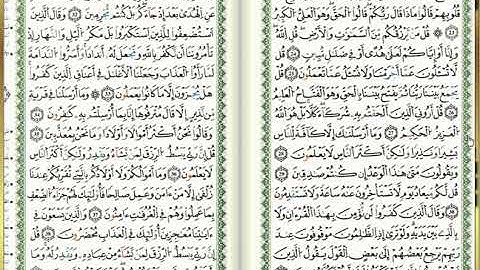 قُلُوبِهِمْ قَالُوا مَاذَا قَالَ رَبُّكُمْ قَالُوا الْحَقَّ وَهُوَ الْعَلِيُّ الْكَبِيرُ
٢٣ ۞ قُلْ مَن يَرْزُقُكُم مِّنَ السَّمَٰوَٰتِ وَالْأَرْضِ قُلِ اللَّهُ
وَإِنَّا أَوْ إِيَّاكُمْ لَعَلَىٰ هُدًى أَوْ فِي ضَلَٰلٍ مُّبِينٍ ٢٤ قُل
لَّا تُسْـَٔلُونَ عَمَّا أَجْرَمْنَا وَلَا نُسْـَٔلُ عَمَّا تَعْمَلُونَ ٢٥ قُلْ
يَجْمَعُ بَيْنَنَا رَبُّنَا ثُمَّ يَفْتَحُ بَيْنَنَا بِالْحَقِّ وَهُوَ الْفَتَّاحُ الْعَلِيمُ
٢٦ قُلْ أَرُونِيَ الَّذِينَ أَلْحَقْتُم بِهِ شُرَكَاءَ كَلَّا بَلْ هُوَ اللَّهُ
الْعَزِيزُ الْحَكِيمُ ٢٧ وَمَا أَرْسَلْنَٰكَ إِلَّا كَافَّةً لِّلنَّاسِ
بَشِيرًا وَنَذِيرًا وَلَٰكِنَّ أَكْثَرَ النَّاسِ لَا يَعْلَمُونَ ٢٨
وَيَقُولُونَ مَتَىٰ هَٰذَا الْوَعْدُ إِن كُنتُمْ صَٰدِقِينَ ٢٩
قُل لَّكُم مِّيعَادُ يَوْمٍ لَّا تَسْتَـْٔخِرُونَ عَنْهُ سَاعَةً وَلَا تَسْتَقْدِمُونَ
٣٠ وَقَالَ الَّذِينَ كَفَرُوا لَن نُّؤْمِنَ بِهَٰذَا الْقُرْءَانِ وَلَا
بِالَّذِي بَيْنَ يَدَيْهِ وَلَوْ تَرَىٰ إِذِ الظَّٰلِمُونَ مَوْقُوفُونَ عِندَ
رَبِّهِمْ يَرْجِعُ بَعْضُهُمْ إِلَىٰ بَعْضٍ الْقَوْلَ يَقُولُ الَّذِينَ
عَنِ الْهُدَىٰ بَعْدَ إِذْ جَاءَكُم بَلْ كُنتُم مُّجْرِمِينَ ٣٢ وَقَالَ الَّذِينَ
اسْتُضْعِفُوا لِلَّذِينَ اسْتَكْبَرُوا بَلْ مَكْرُ الَّيْلِ وَالنَّهَارِ إِذْ
تَأْمُرُونَنَا أَن نَّكْفُرَ بِاللَّهِ وَنَجْعَلَ لَهُ أَندَادًا وَأَسَرُّوا النَّدَامَةَ
لَمَّا رَأَوُا الْعَذَابَ وَجَعَلْنَا الْأَغْلَٰلَ فِي أَعْنَاقِ الَّذِينَ كَفَرُوا
هَلْ يُجْزَوْنَ إِلَّا مَا كَانُوا يَعْمَلُونَ ٣٣ وَمَا أَرْسَلْنَا فِي قَرْيَةٍ
مِّن نَّذِيرٍ إِلَّا قَالَ مُتْرَفُوهَا إِنَّا بِمَا أُرْسِلْتُم بِهِ كَٰفِرُونَ ٣٤
وَقَالُوا نَحْنُ أَكْثَرُ أَمْوَٰلًا وَأَوْلَٰدًا وَمَا نَحْنُ بِمُعَذَّبِينَ ٣٥
قُلْ إِنَّ رَبِّي يَبْسُطُ الرِّزْقَ لِمَن يَشَاءُ وَيَقْدِرُ وَلَٰكِنَّ أَكْثَرَ النَّاسِ
لَا يَعْلَمُونَ ٣٦ وَمَا أَمْوَٰلُكُمْ وَلَا أَوْلَٰدُكُم بِالَّتِي تُقَرِّبُكُمْ عِندَنَا
زُلْفَىٰ إِلَّا مَنْ ءَامَنَ وَعَمِلَ صَٰلِحًا فَأُولَٰئِكَ لَهُمْ جَزَاءُ الضِّعْفِ
بِمَا عَمِلُوا وَهُمْ فِي الْغُرُفَٰتِ ءَامِنُونَ ٣٧ وَالَّذِينَ يَسْعَوْنَ فِي
ءَايَٰتِنَا مُعَٰجِزِينَ أُولَٰئِكَ فِي الْعَذَابِ مُحْضَرُونَ ٣٨ قُلْ
إِنَّ رَبِّي يَبْسُطُ الرِّزْقَ لِمَن يَشَاءُ مِنْ عِبَادِهِ وَيَقْدِرُ لَهُ وَمَا